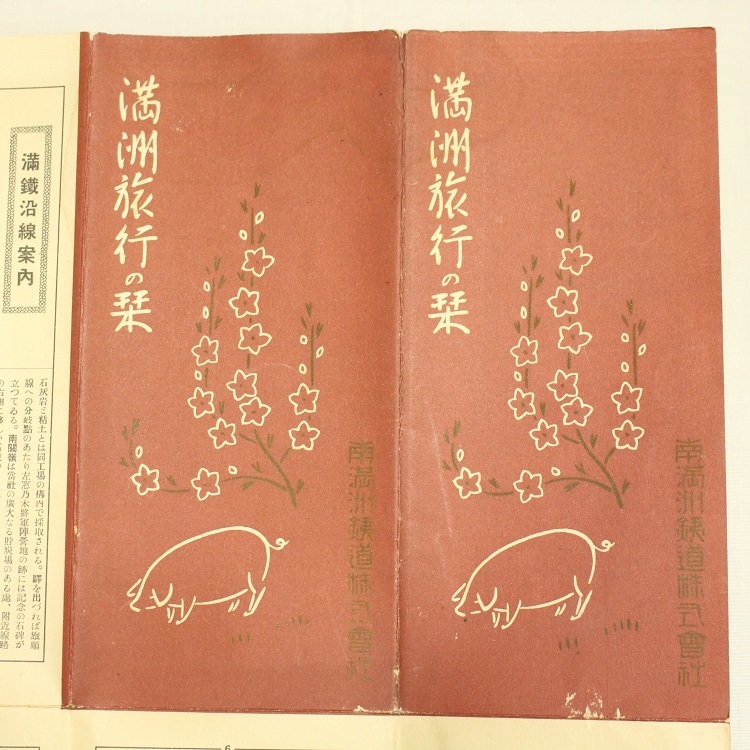 満洲旅行の栞
南満洲鉄道株式會社
満洲旅行の栞
南満洲鉄道株式會社
滿鐵沿線案內
石灰岩と粘土とは同工場の構內で採取される。驛を出づれば旅順
線への分岐點のあたり左窓乃木將軍陣營地の跡には記念の石碑が
立つてゐる。南關嶺は當社の廣大なる貯炭場のある處、附近線路
6